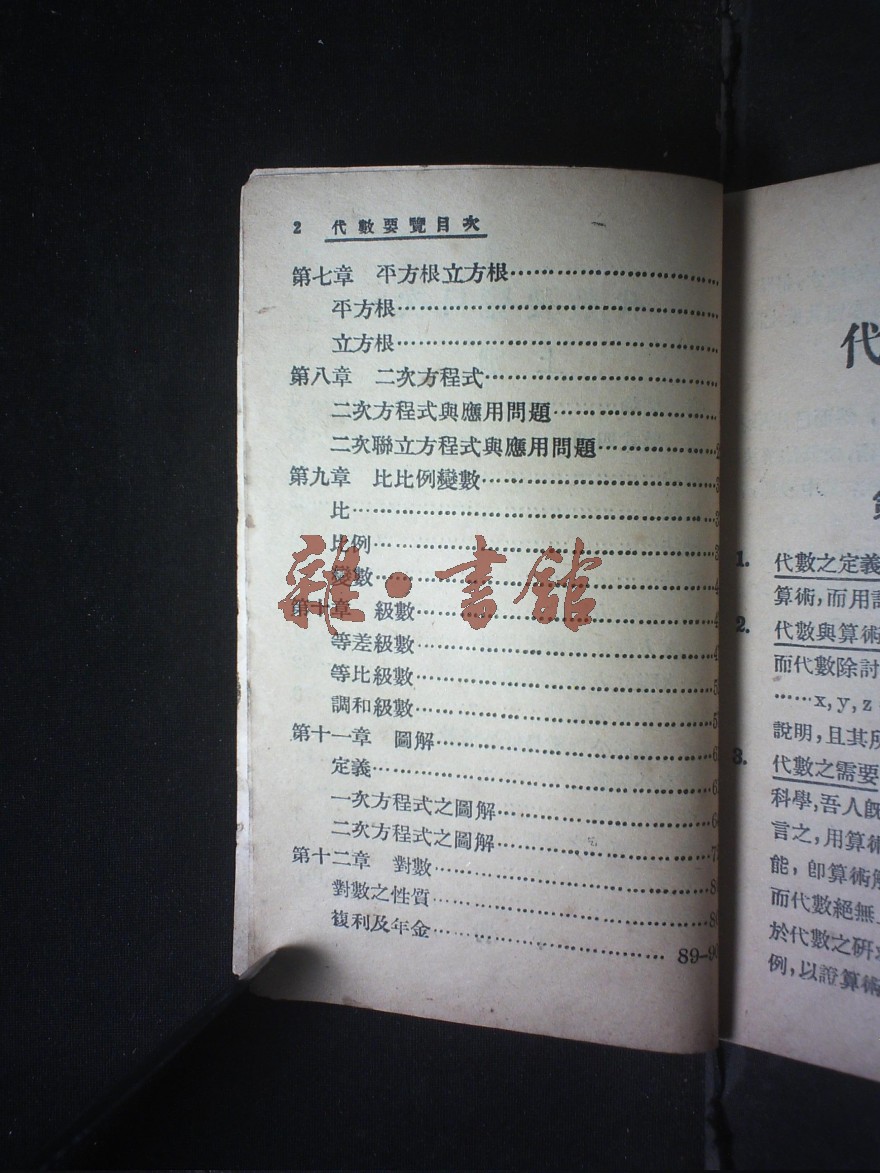 2 代數要覽目次
第七章 平方根立方根……
平方根……
立方根……
第八章 二次方程式……
二次方程式與應用問題……
二次聯立方程式與應用問題……
第九章 比比例變數……
比……
比例……
變數……
第十章 級數……
等差級數……
等比級數……
調和級數……
第十一章 圖解……
定義……
一次方程式之圖解……
二次方程式之圖解……
第十二章 對數……
對數之性質……
複利及年金…… 89-90
雜·書館
代
1. 代數之定義
算術,而用
2. 代數與算術
而代數除討
……x, y, z
說明,且其所
3. 代數之需要
科學,吾人既
言之,用算術
能,卽算術解
而代數絕無
於代數之研究
例,以證算術